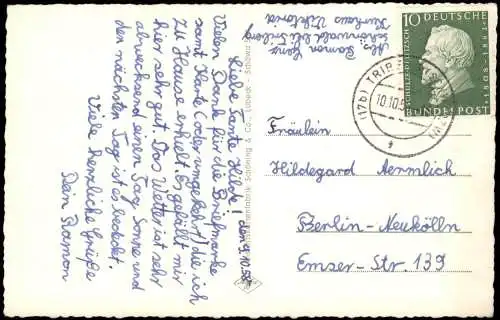 Abs.
Ramon Ganz
Schönwald bei Triberg
Kurhaus Viktoria
10 DEUTSCHE
SCHULZE-DELITZSCH
1808-1883
BUNDESPOST
(17b) TRIBERG
10.10.5
den 9.10.58
Liebe Tante Hilde!
Vielen Dank für die Briefmarke
samt Karte (oder umgekehrt) die ich
zu Hause erhielt. Es gefällt mir
hier sehr gut. Das Wetter ist sehr
abwechselnd einen Tag Sonne und
den nächsten Tag ist es bedeckt.
Viele herzliche Grüße
Dein Ramon
Schöning & Co., Lübeck
Fräulein
Hildegard Aermlich
Berlin-Neukölln
Emser-Str. 139